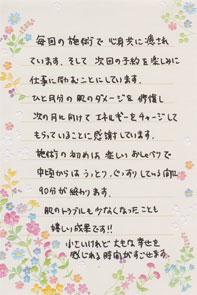 毎回の施術で心身共に癒され
ています。そして次回の予約を楽しみに
仕事に励むことにしています。
ひと月分の肌のダメージを修復し
次の月に向けてエネルギーをチャージして
もらっていることに感謝しています。
施術の初めは楽しいおしゃべりで
中頃からはうっとり、ぐっすりしている間に
90分が終わります。
肌のトラブルも少なくなったことも
嬉しい成果です!!
小さいけれど大きな幸せを
感じれる時間がすごせます。